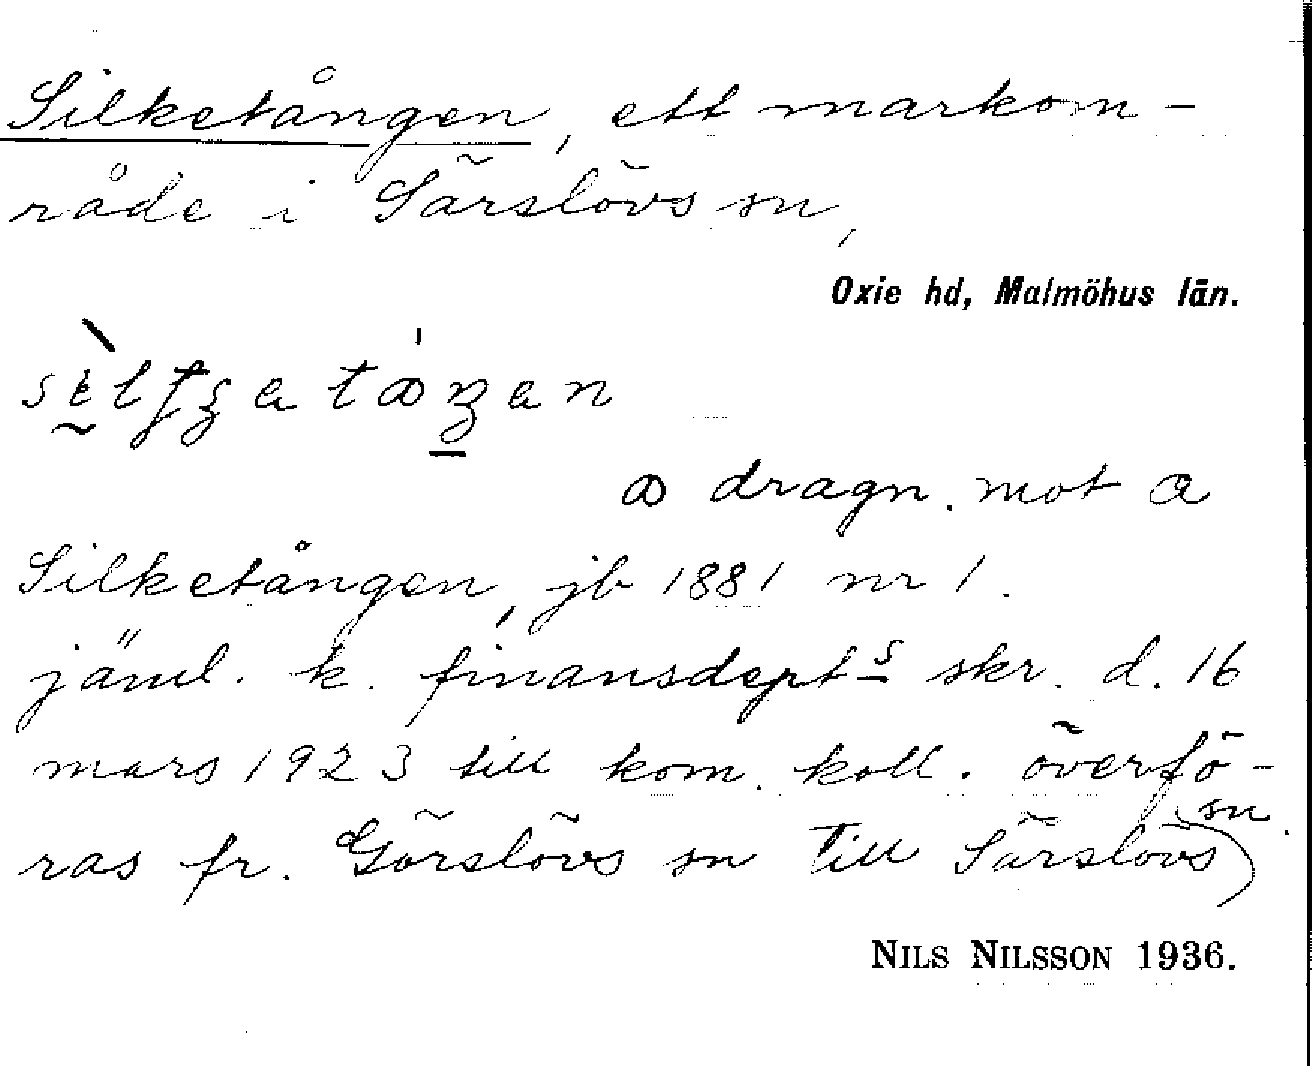 Silketången, ett markom-
råde i Särslövs sn,
Oxie hd, Malmöhus län.
dragn. mot a
Silketången, jb 1881 nr 1.
jäml. k. finansdepts skr. d. 16
mars 1923 till kom. koll. överfö-
ras fr. Görslövs sn till Särslövs sn.
NILS NILSSON 1936.